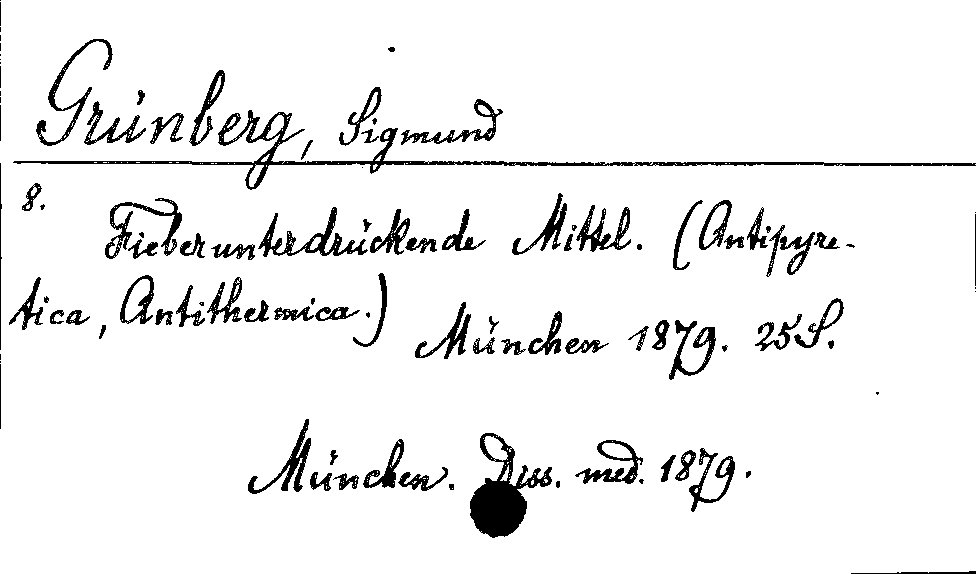 Grünberg, Sigmund
8.
Fieberunterdrückende Mittel. (Antipyre-
tica, Antithermica.)
München 1879. 25 S.
München. Diss. med. 1879.